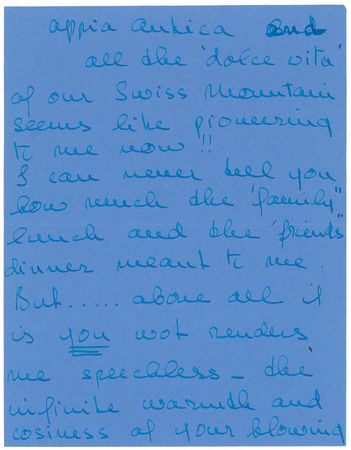 appia antica and
all the 'dolce vita'
of our Swiss Mountain
seems like pioneering
to me now !!
I can never tell you
how much the "family"
lunch and the "friends"
dinner meant to me.
But ..... above all it
is you wot renders
me speechless - the
infinite warmth and
cosiness of your glowing